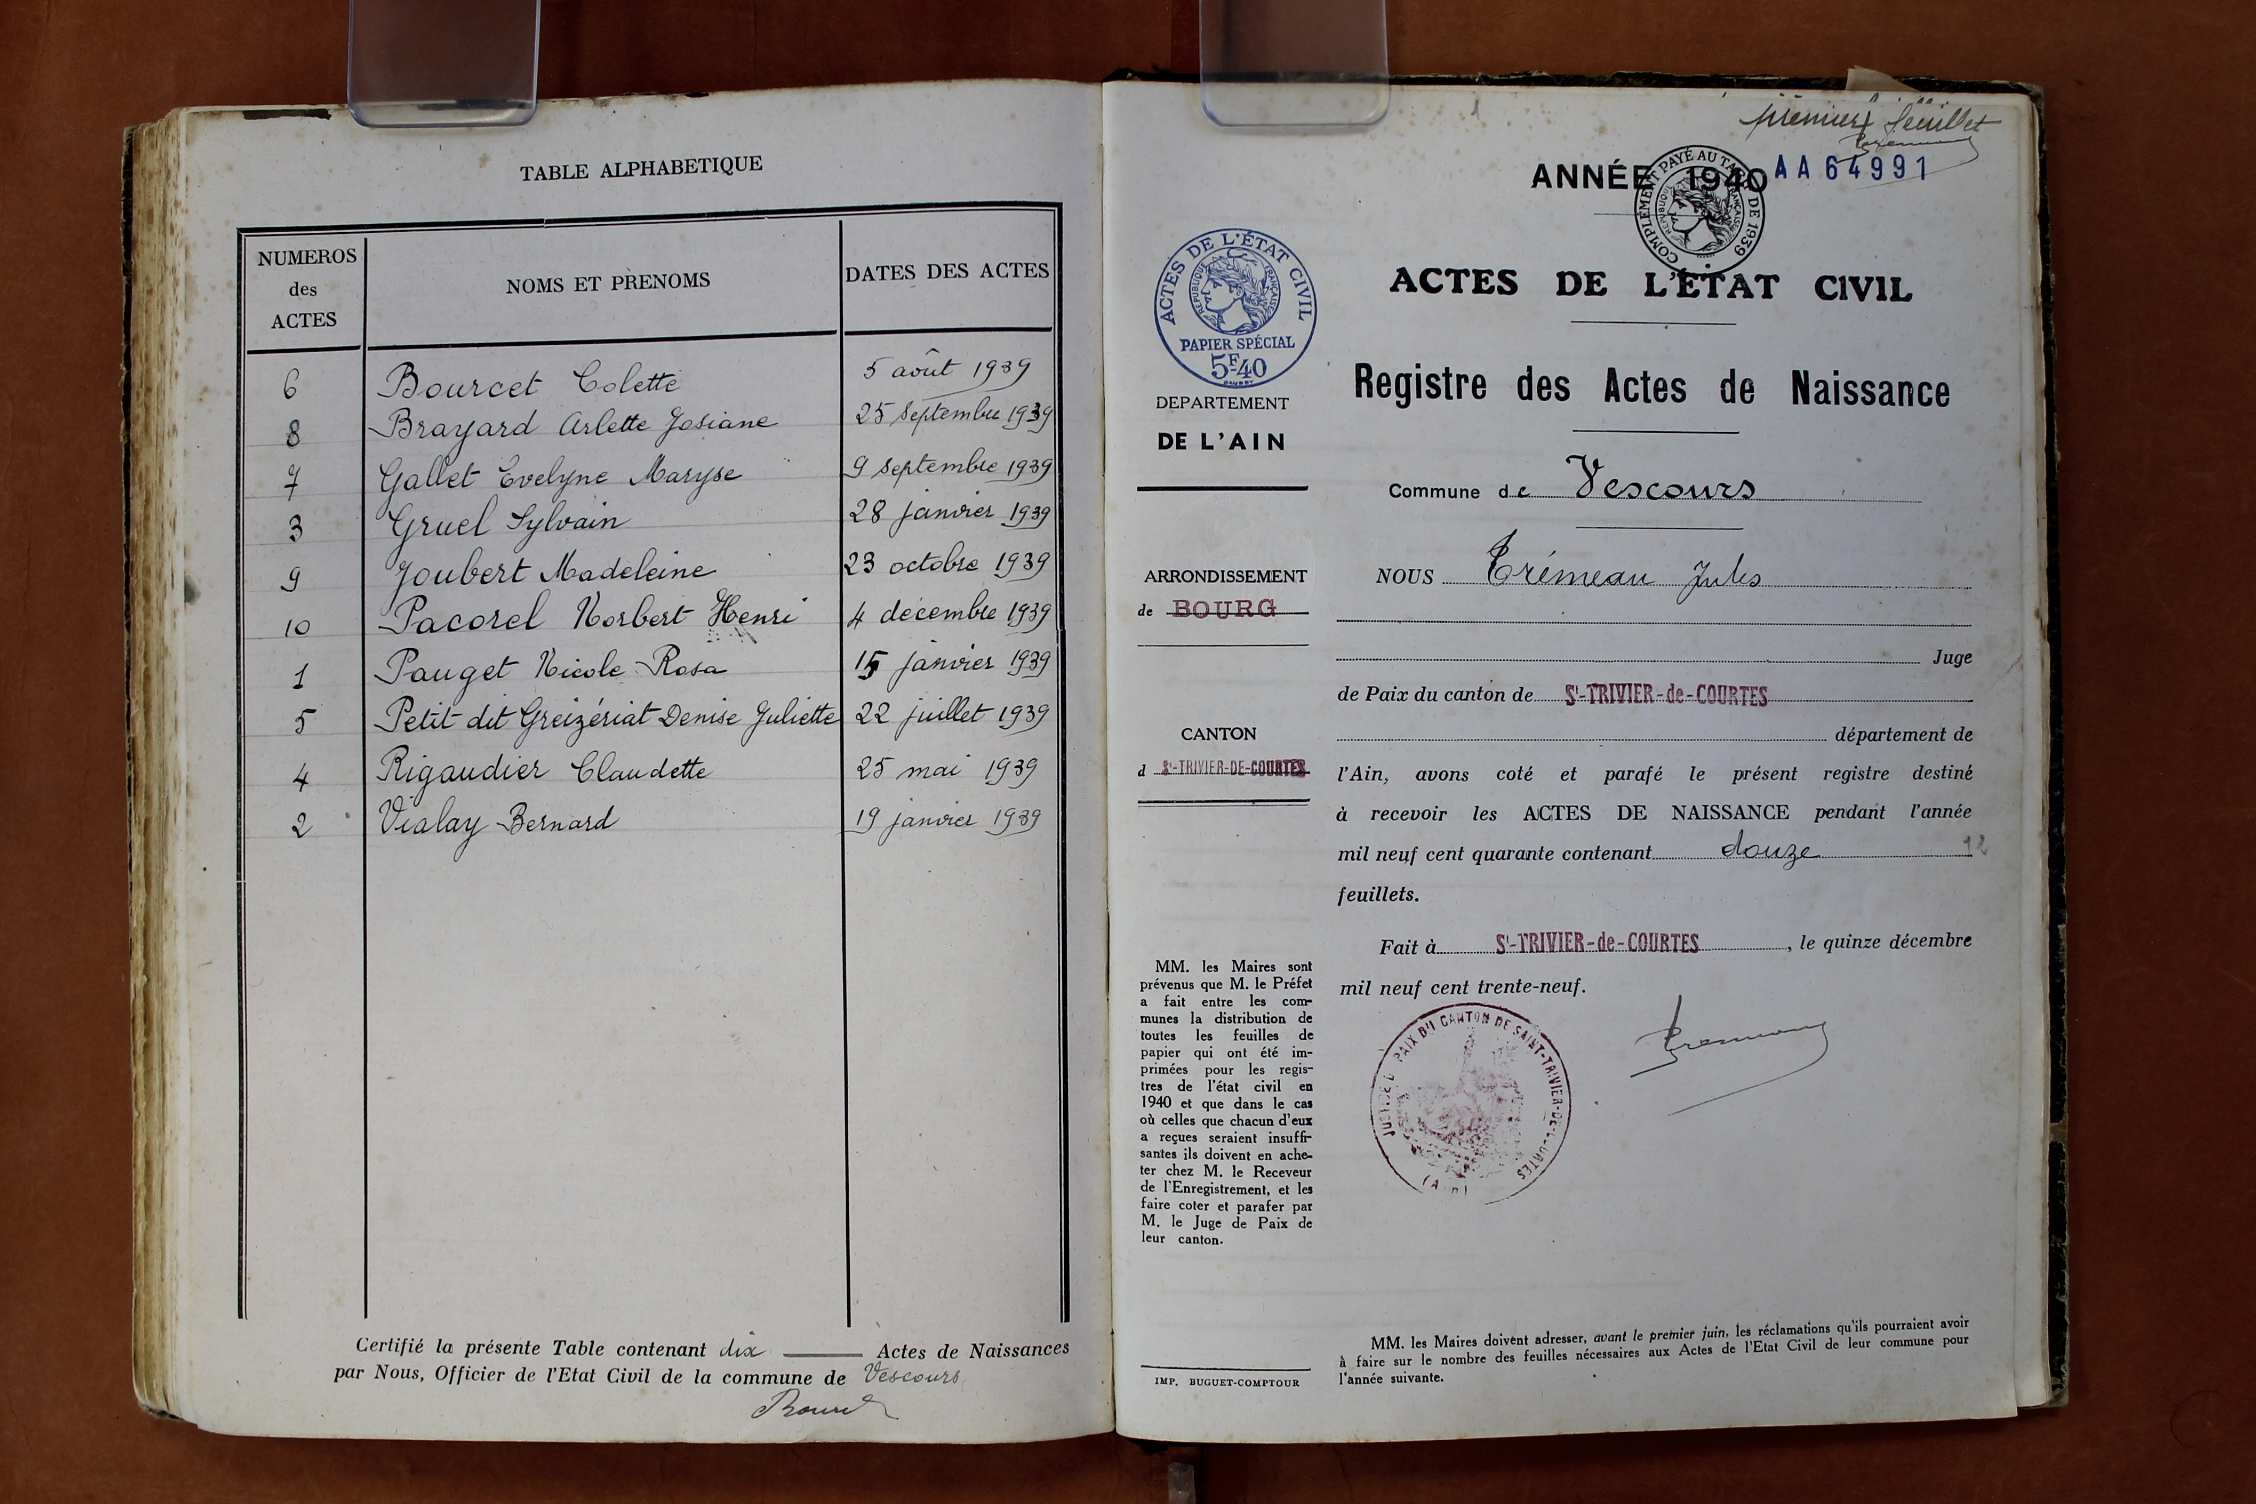 TABLE ALPHABETIQUE
NUMEROS des ACTES
NOMS ET PRENOMS
DATES DES ACTES
6 Bourcet Colette 5 août 1939
8 Brayard Arlette Josiane 25 septembre 1939
7 Gallet Evelyne Maryse 9 septembre 1939
3 Gruel Sylvain 28 janvier 1939
9 Joubert Madeleine 23 octobre 1939
10 Pacorel Norbert Henri 4 décembre 1939
1 Pauget Nicole Rosa 15 janvier 1939
5 Petit dit Greizériat Denise Juliette 22 juillet 1939
4 Rigaudier Claudette 25 mai 1939
2 Vialay Bernard 19 janvier 1939
Certifié la présente Table contenant dix Actes de Naissances
par Nous, Officier de l'Etat Civil de la commune de Vescours
premier feuillet
AA64991
ANNÉE 1940
COMPLÉMENT PAYÉ AU TARIF DE 1939
REPUBLIQUE FRANÇAISE
ACTES DE L'ÉTAT CIVIL
REPUBLIQUE FRANÇAISE
PAPIER SPÉCIAL
5F40
DEPARTEMENT
DE L'AIN
ARRONDISSEMENT
de BOURG
CANTON
d St-TRIVIER-DE-COURTES
MM. les Maires sont
prévenus que M. le Préfet
a fait entre les com-
munes la distribution de
toutes les feuilles de
papier qui ont été im-
primées pour les regis-
tres de l'état civil en
1940 et que dans le cas
où celles que chacun d'eux
a reçues seraient insuffi-
santes ils doivent en ache-
ter chez M. le Receveur
de l'Enregistrement, et les
faire coter et parafer par
M. le Juge de Paix de
leur canton.
IMP. BUGUET-COMPTOUR
ACTES DE L'ETAT CIVIL
Registre des Actes de Naissance
Commune de Vescours
NOUS Trémeau Jules
Juge
de Paix du canton de St-TRIVIER-de-COURTES
département de
l'Ain, avons coté et parafé le présent registre destiné
à recevoir les ACTES DE NAISSANCE pendant l'année
mil neuf cent quarante contenant douze 12
feuillets.
Fait à St-TRIVIER-de-COURTES, le quinze décembre
mil neuf cent trente-neuf.
JUSTICE DE PAIX DU CANTON DE SAINT-TRIVIER-DE-COURTES
(Ain)
MM. les Maires doivent adresser, avant le premier juin, les réclamations qu'ils pourraient avoir
à faire sur le nombre des feuilles nécessaires aux Actes de l'Etat Civil de leur commune pour
l'année suivante.